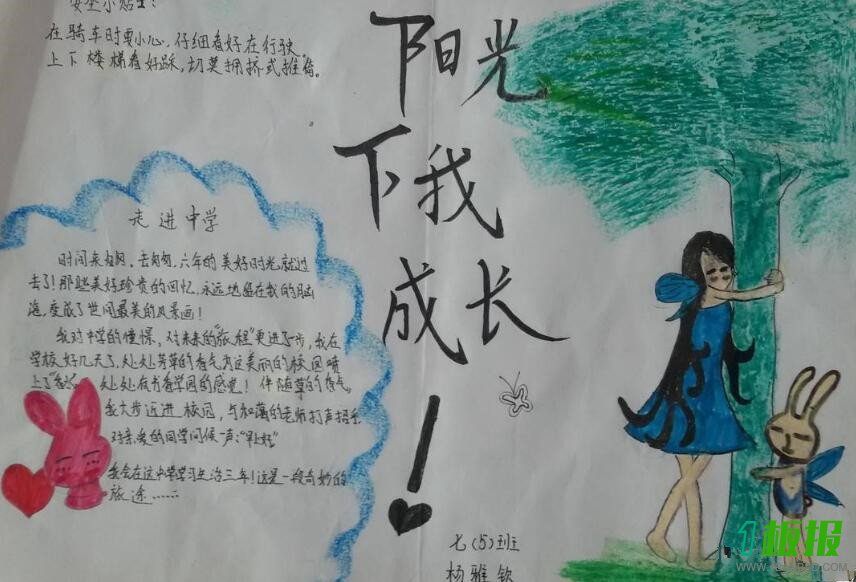 安全小贴士：
在骑车时要小心，仔细看好在行驶。
上下楼梯看好踩，切莫拥挤式推偹。
阳光
下我
成长
！
走进中学
时间来匆匆，去匆匆，六年的美好时光就过
去了！那些美好珍贵的回忆，永远地留在我的脑
海，变成了世间最美的风景画！
我对中学的憧憬，对未来的“旅程”更进了步，我在
学校好几天了，处处芳草的香气为这美丽的校园喷
上了 处处有书香学园的感觉！伴随草的香气，
我大步迈进校园，与和蔼的老师打声招呼
对亲爱的同学问候一声：“早上好”
我会在这中学学习生活三年！这是一段奇妙的
旅途……
七（5）班
杨雅钦
板报